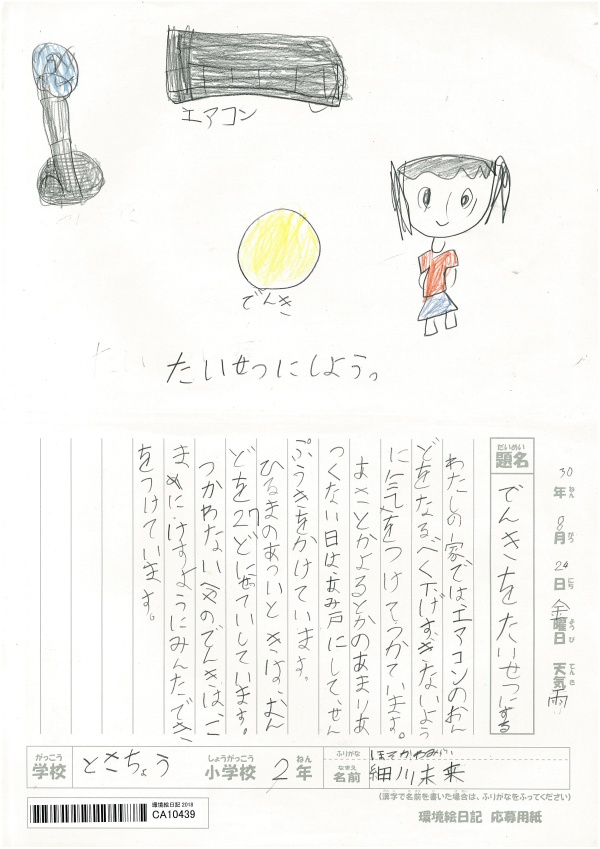 エアコン
でんき
たいせつにしよう。
30年ねん 8月がつ 24日にち 金曜日ようび 天気てんき 雨
だいめい
題名
でんきをたいせつにする
わたしの家では、エアコンのおん
どをなるべく下げすぎないよう
に気をつけてつかています。
あさとかよるとかのあまりあ
つくない日は、あみ戸にして、せん
ぷうきをかけています。
ひるまのあっいときは、おん
どを27どにせっていしています。
つかわない時のでんきは、こ
まめにけすようにみんなでき
をつけています。
がっこう
学校
とさちょう
しょうがっこう
小学校
2年ねん
ふりがな
ほそかわみらい
なまえ
名前
細川未来
(漢字で名前を書いた場合は、ふりがなをふってください)
環境絵日記2018
CA10439
環境絵日記 応募用紙